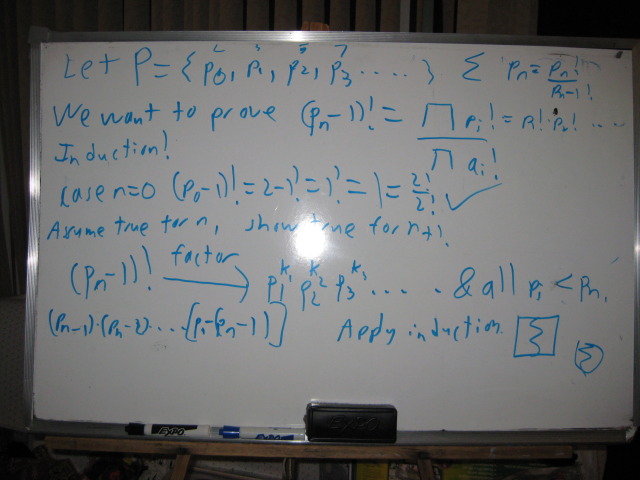 2 3 5 7
Let P = { p0, p1, p2, p3 .... } Σ pn = pn! / pn-1!
We want to prove (pn-1)! = ∏ pi! / ∏ ai! = p1! · p2! ....
Induction!
case n=0 (p0-1)! = 2-1! = 1! = 1 = 2!/2! ✓
Assume true for n, show true for n+1.
(pn-1)! factor → p1^k1 p2^k2 p3^k3 ..... & all pi < pn.
(pn-1)·(pn-2)· ... [pn-(pn-1)] Apply induction. Σ Σ
EXPO EXPO EXPO